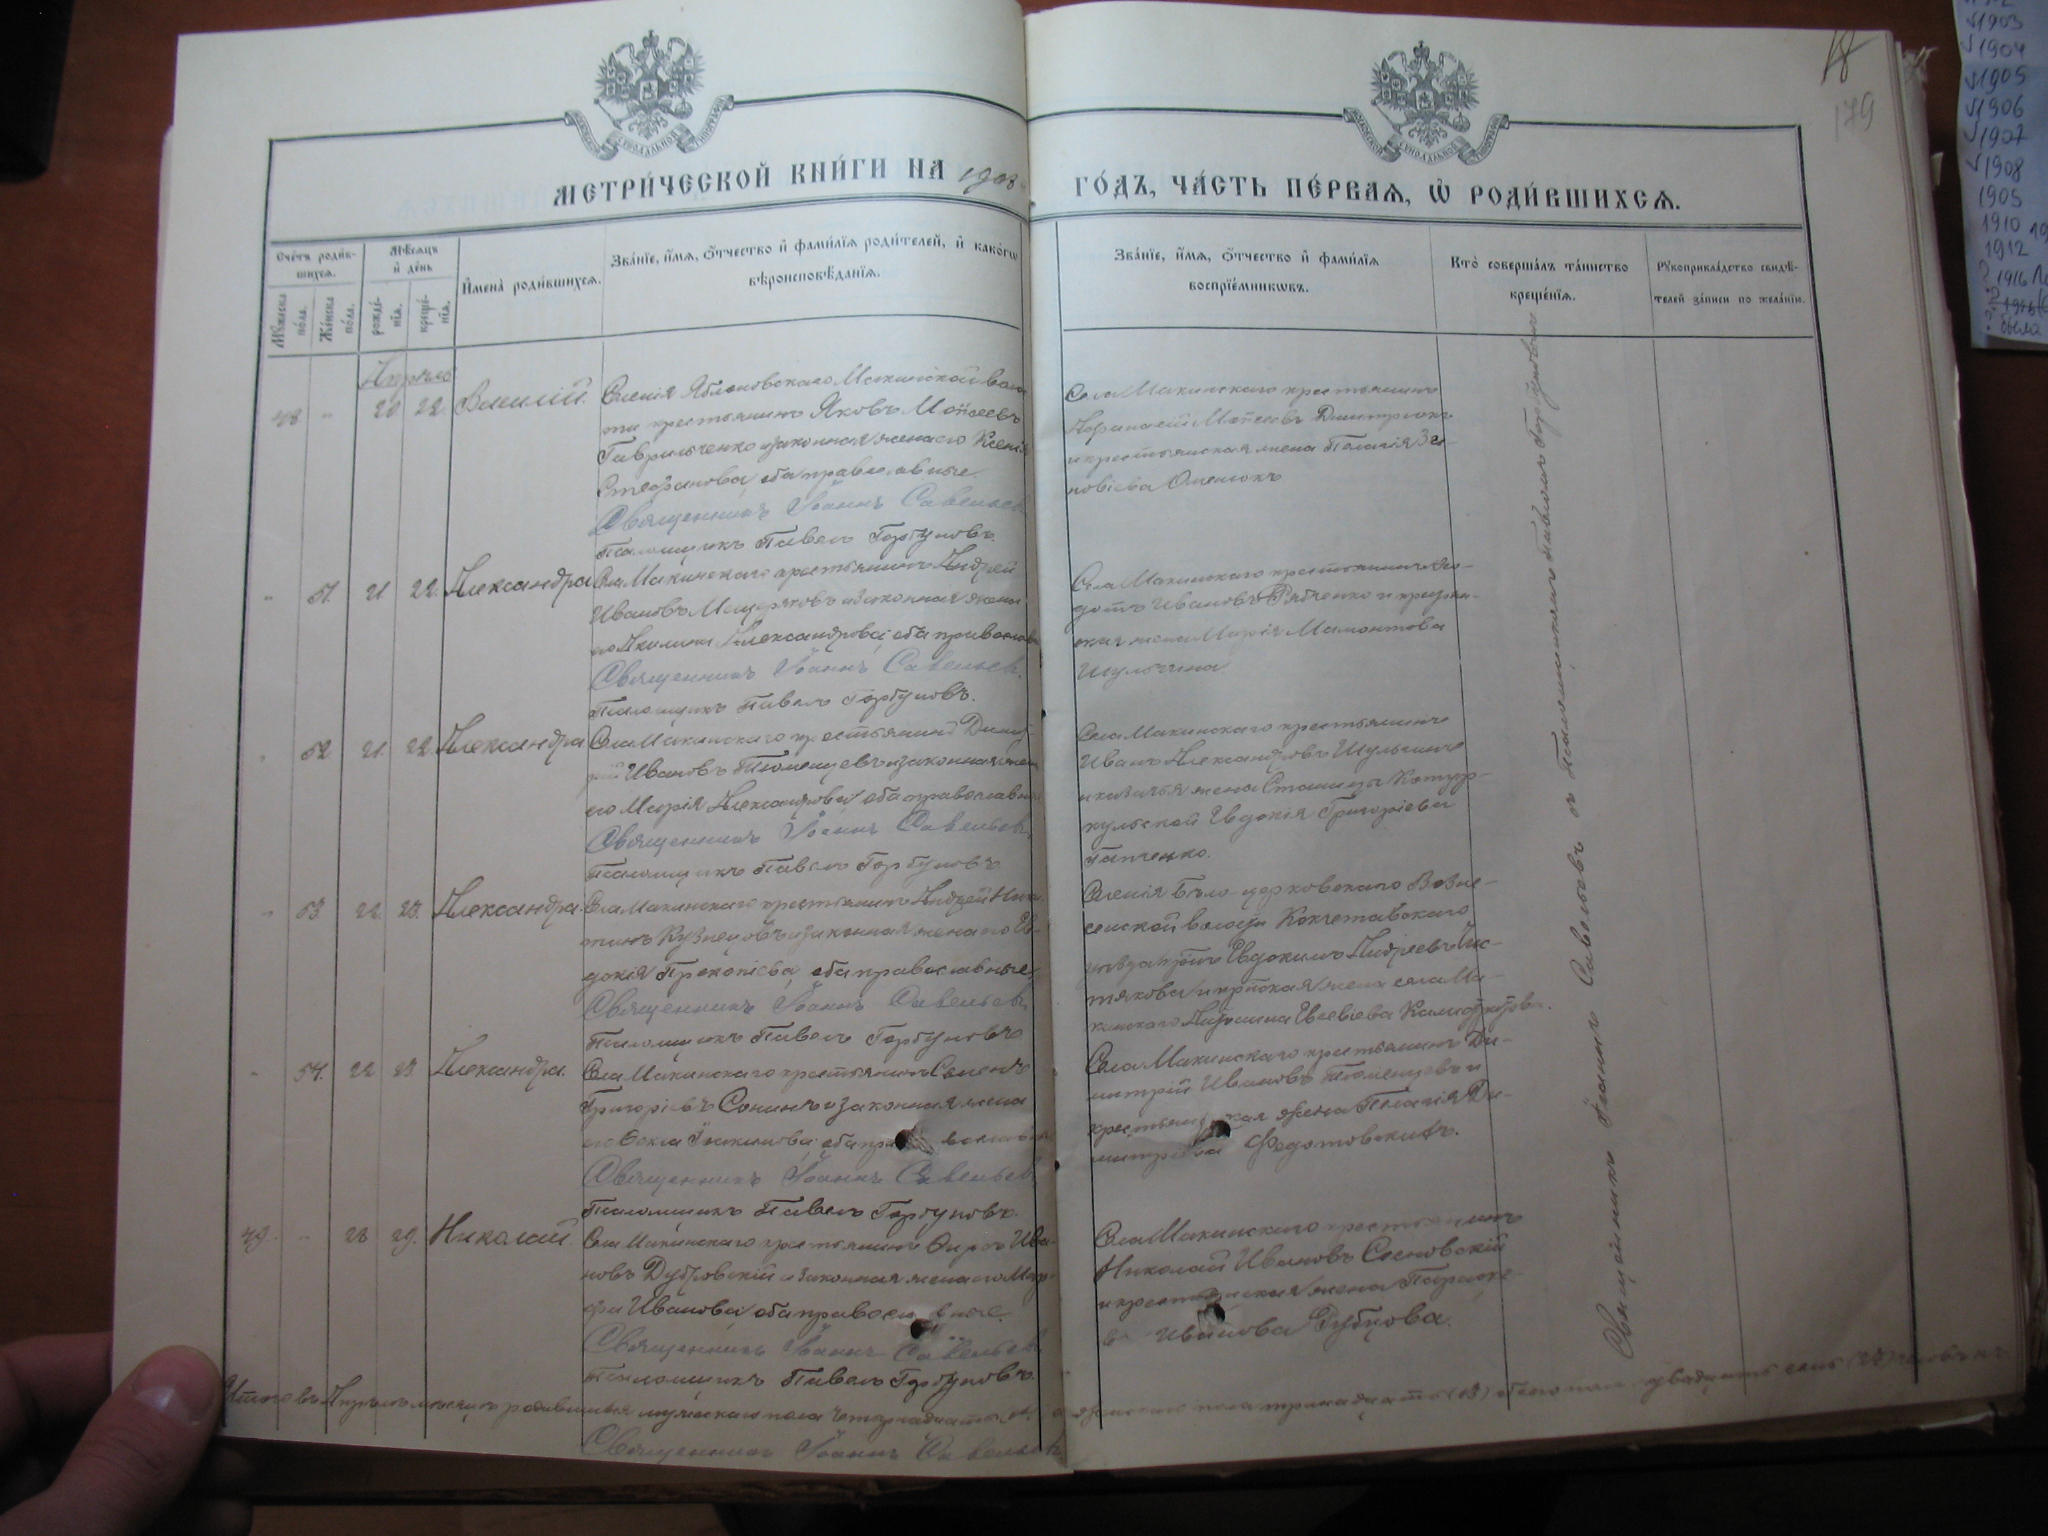 МЕТРИ́ЧЕСКОЙ КНИ́ГИ НА 1908
ГО́ДЪ, ЧА́СТЬ ПЕ́РВАѦ, Ѡ҆ РОДИ́ВШИХСѦ.
18
179
Сче́тъ роди́в-
шихсѧ.
Мѣ́сѧцъ
и҆ де́нь
Мꙋ́жеска
по́ла.
Же́нска
по́ла.
рожде́-
нїѧ.
креще́-
нїѧ.
И҆мена̀ роди́вшихсѧ.
Зва́нїе, и҆́мѧ, ѻ҆́тчество и҆ фами́лїѧ роди́телей, и҆ како́гѡ
вѣроисповѣ́данїѧ.
Зва́нїе, и҆́мѧ, ѻ҆́тчество и҆ фами́лїѧ
воспрїе́мникѡвъ.
Кто̀ соверша́лъ та́инство
креще́нїѧ.
Рꙋкоприкла́дство свидѣ́-
телей за́писи по жела́нїю.
Апрѣль
48 " 20 22. Василій.
Селенія Яблоновскаго Макинской воло
сти крестьянинъ Яковъ Моисеевъ
Гаврильченко и законная жена его Ксенія
Стефанова, оба православные.
Священникъ Іоаннъ Савельевъ
Псаломщикъ Павелъ Горбуновъ.
Села Макинскаго крестьянинъ
Моисеевъ Дмитрюкъ
и крестьянская жена Пелагія Зи-
новіева
" 51. 21 22. Александра
Села Макинскаго крестьянинъ Андрей
Ивановъ Мещеряковъ и законная жена
его Акилина Александрова, оба православн
Священникъ Іоаннъ Савельевъ.
Псаломщикъ Павелъ Горбуновъ.
Села Макинскаго крестьянинъ Ѳе-
дотъ Ивановъ Рябченко и крестьян-
ская жена Марія Мамонтова
Шульгина.
" 52 21. 22 Александра
Села Макинскаго крестьянинъ Дими-
трій Ивановъ Тюменцевъ и законная жена
его Марія Александрова, оба православн
Священникъ Іоаннъ Савельевъ.
Псаломщикъ Павелъ Горбуновъ
Села Макинскаго крестьянинъ
Иванъ Александровъ Шульгинъ
и казачья жена Станицы Котур-
кульской Евдокія Григоріева
Гапченко.
" 53. 22. 23. Александра
Села Макинскаго крестьянинъ Андрей Ники-
тинъ Кузнецовъ и законная жена его Ев-
докія Прокопіева, оба православные,
Священникъ Іоаннъ Савельевъ
Псаломщикъ Павелъ Горбуновъ
Селенія Бѣло-церковскаго Возне-
сенской волости Кокчетавскаго
уѣзда Евдокимъ Андреевъ Чис-
тяковъ и жена села Ма-
кинскаго Евсевіева
" 54. 22 23 Александра.
Села Макинскаго крестьянинъ Семенъ
Григоріевъ Сонинъ и законная жена
его Ѳекла оба православн
Священникъ Іоаннъ Савельевъ
Псаломщикъ Павелъ Горбуновъ.
Села Макинскаго крестьянинъ Ди-
митрій Ивановъ Тюменцевъ и
крестьянская жена Пелагія Ди-
митріева Федотовскихъ.
49. " 28 29. Николай.
Села Макинскаго крестьянинъ Ива-
новъ Дубровскій и законная жена его Мар-
фа Иванова, оба православные.
Священникъ Іоаннъ Савельевъ
Псаломщикъ Павелъ Горбуновъ.
Села Макинскаго крестьянинъ
Николай Ивановъ Сосновскій
и крестьянская жена Параске-
ва Иванова Рубцова.
Священникъ Іоаннъ Савельевъ съ Псаломщикомъ Павломъ Горбуновымъ
Итого въ Апрѣлѣ мѣсяцѣ родившихся мужескаго пола четырнадцать (14) а женскаго пола тринадцать (13) обоего пола двадцать семь (27) человѣкъ
Священникъ Іоаннъ Савельевъ
√1903
√1904
√1905
√1906
√1907
√1908
1905
1910
1912